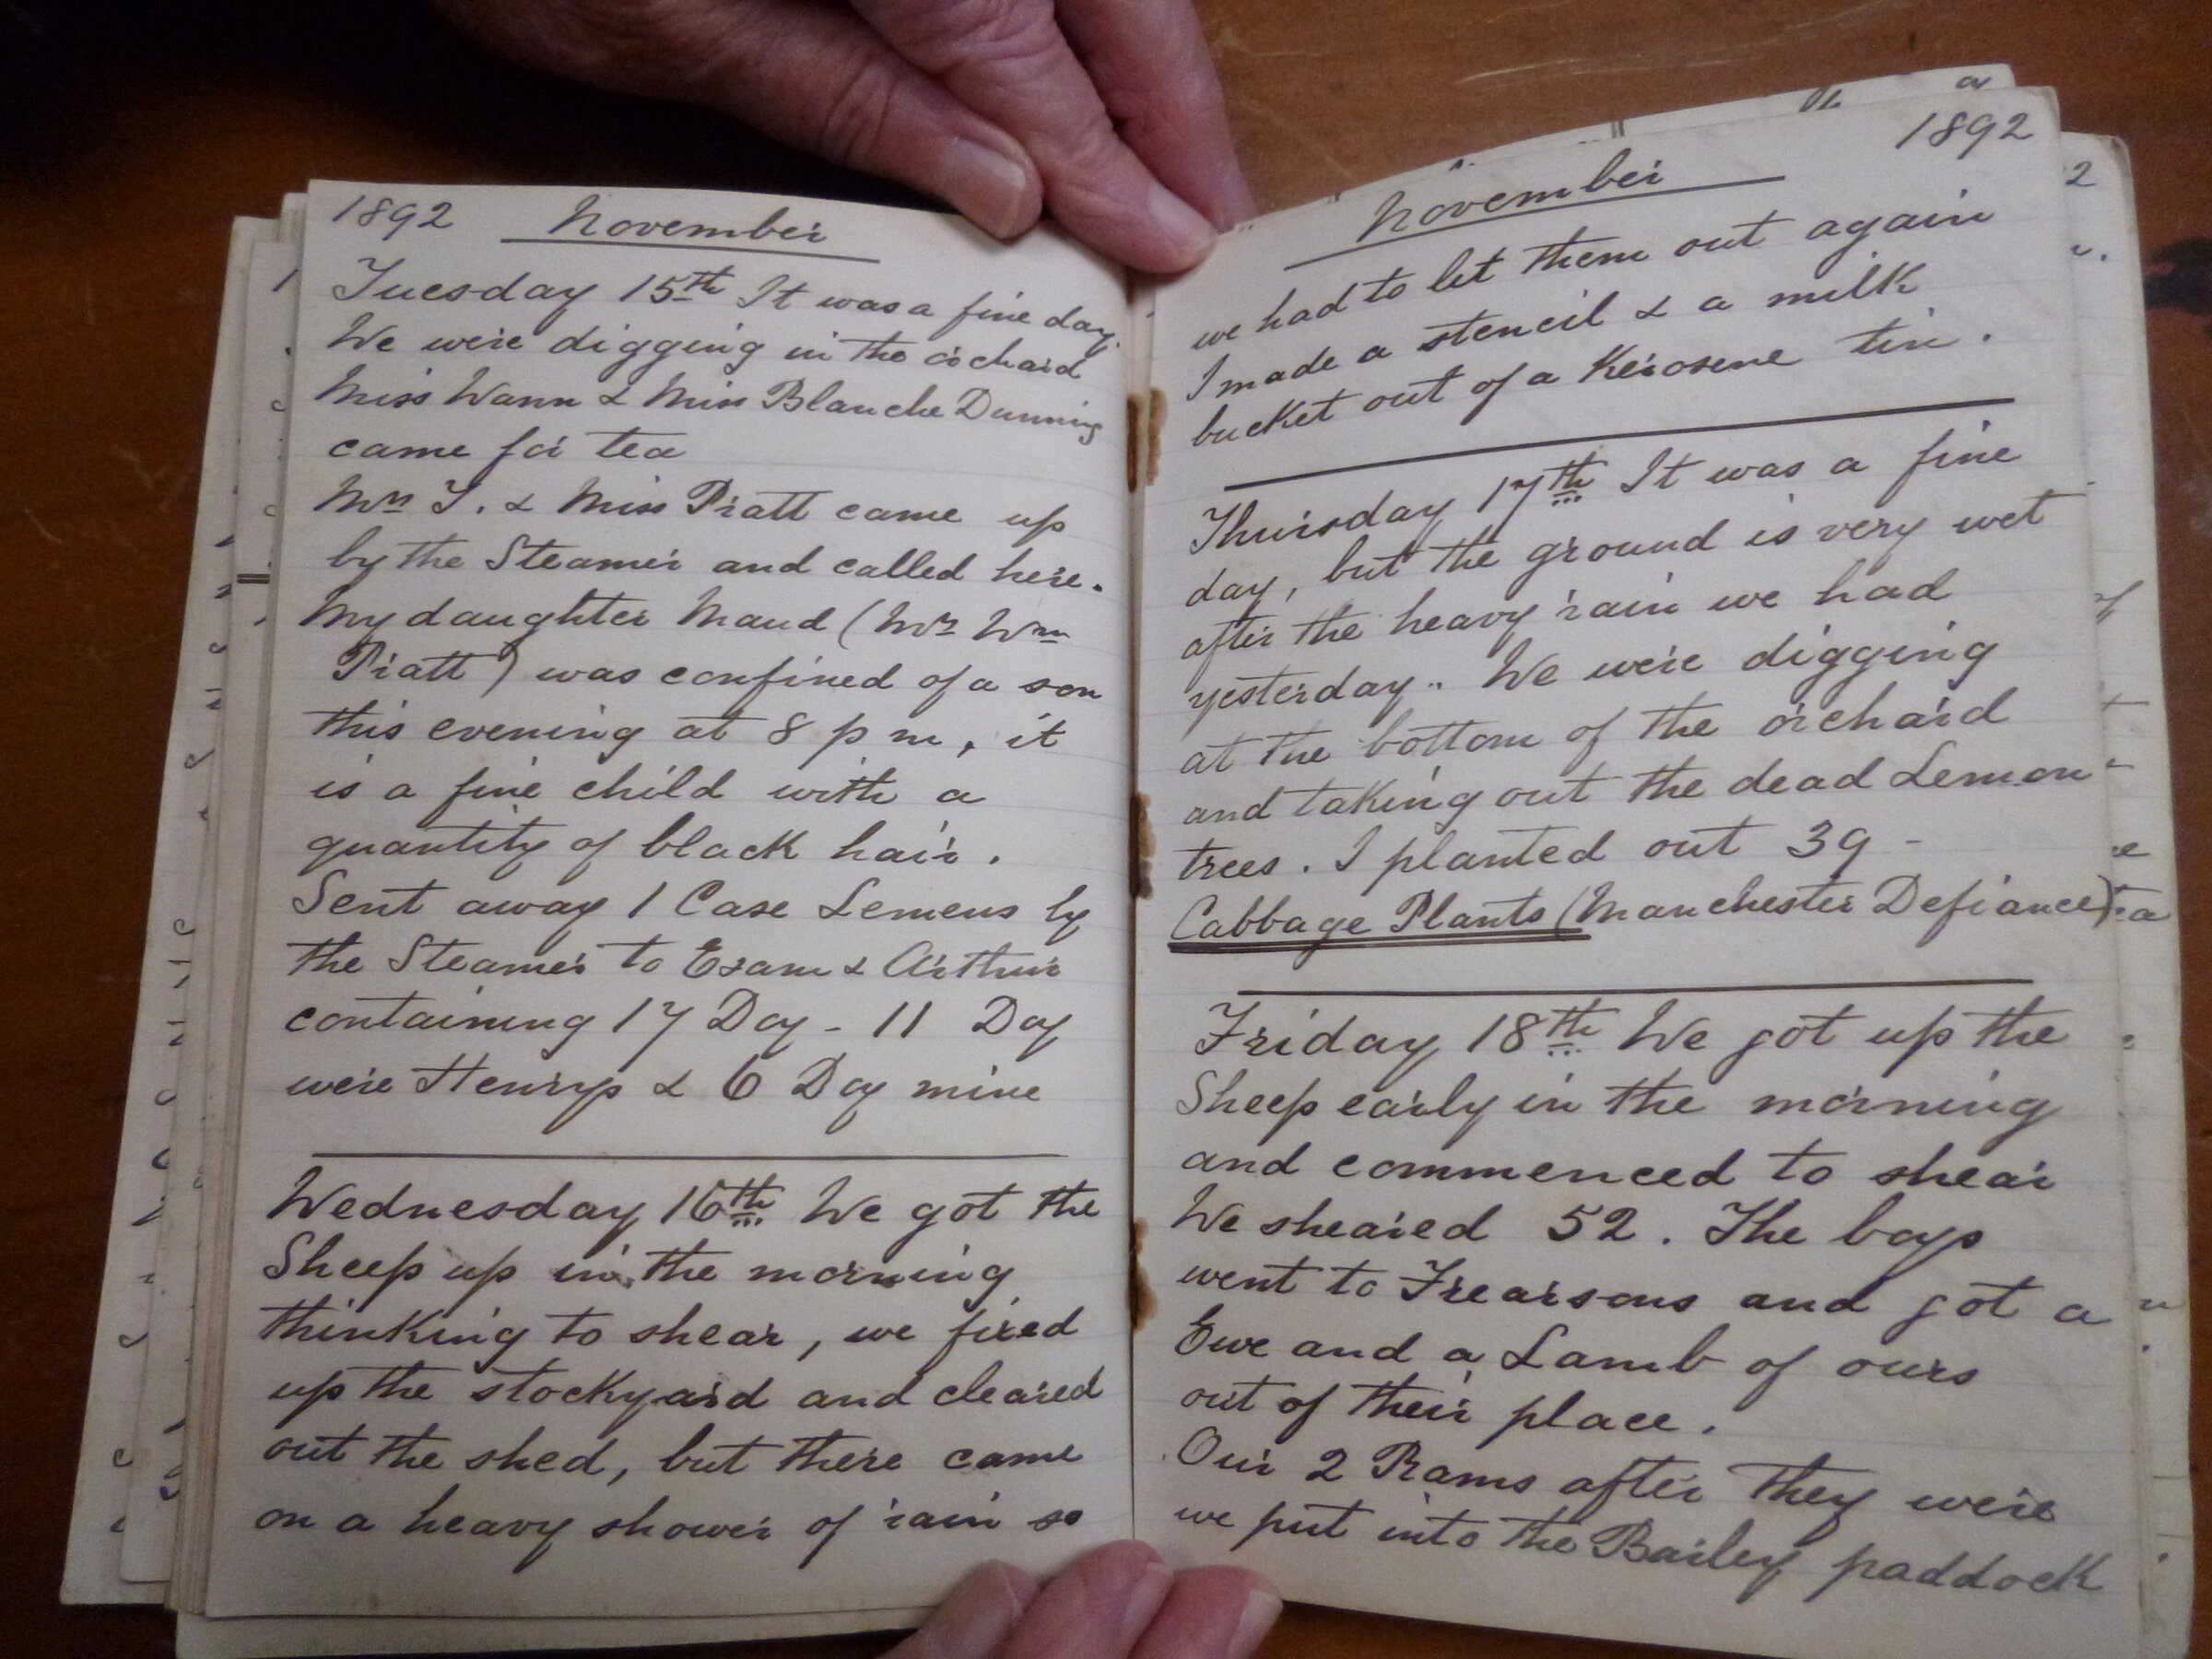 1892 November
Tuesday 15th It was a fine day.
We were digging in the orchard
Miss Wann & Miss Blanche Dunning
came for tea
Mrs T. & Miss Pratt came up
by the Steamer and called here.
My daughter Maud (Mrs Wm
Pratt) was confined of a son
this evening at 8 p m, it
is a fine child with a
quantity of black hair.
Sent away 1 Case Lemons by
the Steamer to Exam & Arthur
containing 17 Doz - 11 Doz
were Henrys & 6 Doz mine
Wednesday 16th We got the
Sheep up in the morning
thinking to shear, we fixed
up the stockyard and cleared
out the shed, but there came
on a heavy shower of rain so
November 1892
we had to let them out again
I made a stencil & a milk
bucket out of a Kerosene tin.
Thursday 17th It was a fine
day, but the ground is very wet
after the heavy rain we had
yesterday.. We were digging
at the bottom of the orchard
and taking out the dead Lemon-
trees. I planted out 39 -
Cabbage Plants (Manchester Defiance)
Friday 18th We got up the
Sheep early in the morning
and commenced to shear
We sheared 52. The boys
went to Frearsons and got a
Ewe and a Lamb of ours
out of their place.
Our 2 Rams after they were
we put into the Bailey paddock